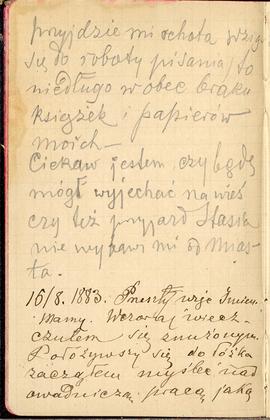 przyjdzie mi ochota wziąć
się do roboty pisania, to
niedługo w obec braku
książek i papierów
moich —
Ciekaw jestem czy będę
mógł wyjechać na wieś
czy też przyjazd Stasia
nie wyprawi mi od Mias-
ta. —
16/8. 1883. Imien.
Mamy. Wczoraj wiecz-
czułem się znużonym.
Położywszy się do łóżka
zacząłem myśleć nad
owadniczą pracą, jaką